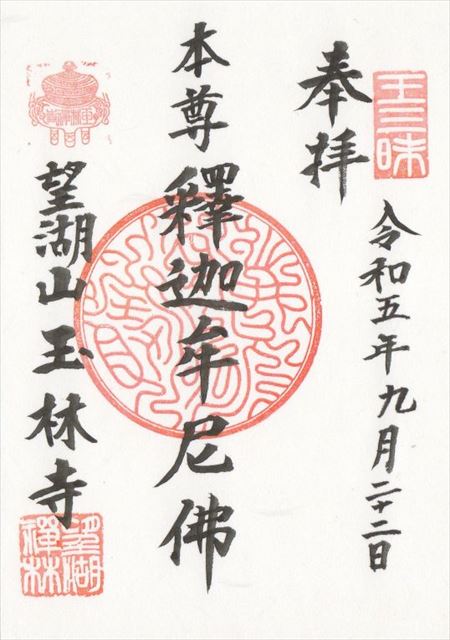 奉拝
王三昧
令和五年九月二十二日
本尊
釋迦牟尼佛
望湖山玉林寺
望湖
禅林